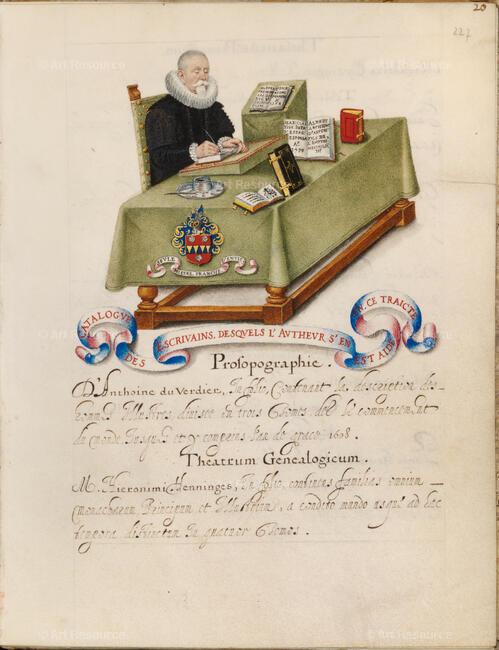 20
227
SEVLE VERTVE
CATALOGVE DES ESCRIVAINS, DESQVELS L'AVTHEVR S'EN EST AIDÉ EN CE TRAICTÉ
Prosopographie.
D'Anthoine du Verdier, In folio, Contenant la description des
hommes Illustres divisee en trois Thomes, des le commencement
du monde Jusques et y compris l'an de grace, 1608.
Theatrum Genealogicum.
M. Hieronimi Henninges, In folio, continens familias omnium
Monarcharum Principum et Illustrium, a condito mundo usque ad hec
tempora distinctum In quatuor Thomos.
© Art Resource